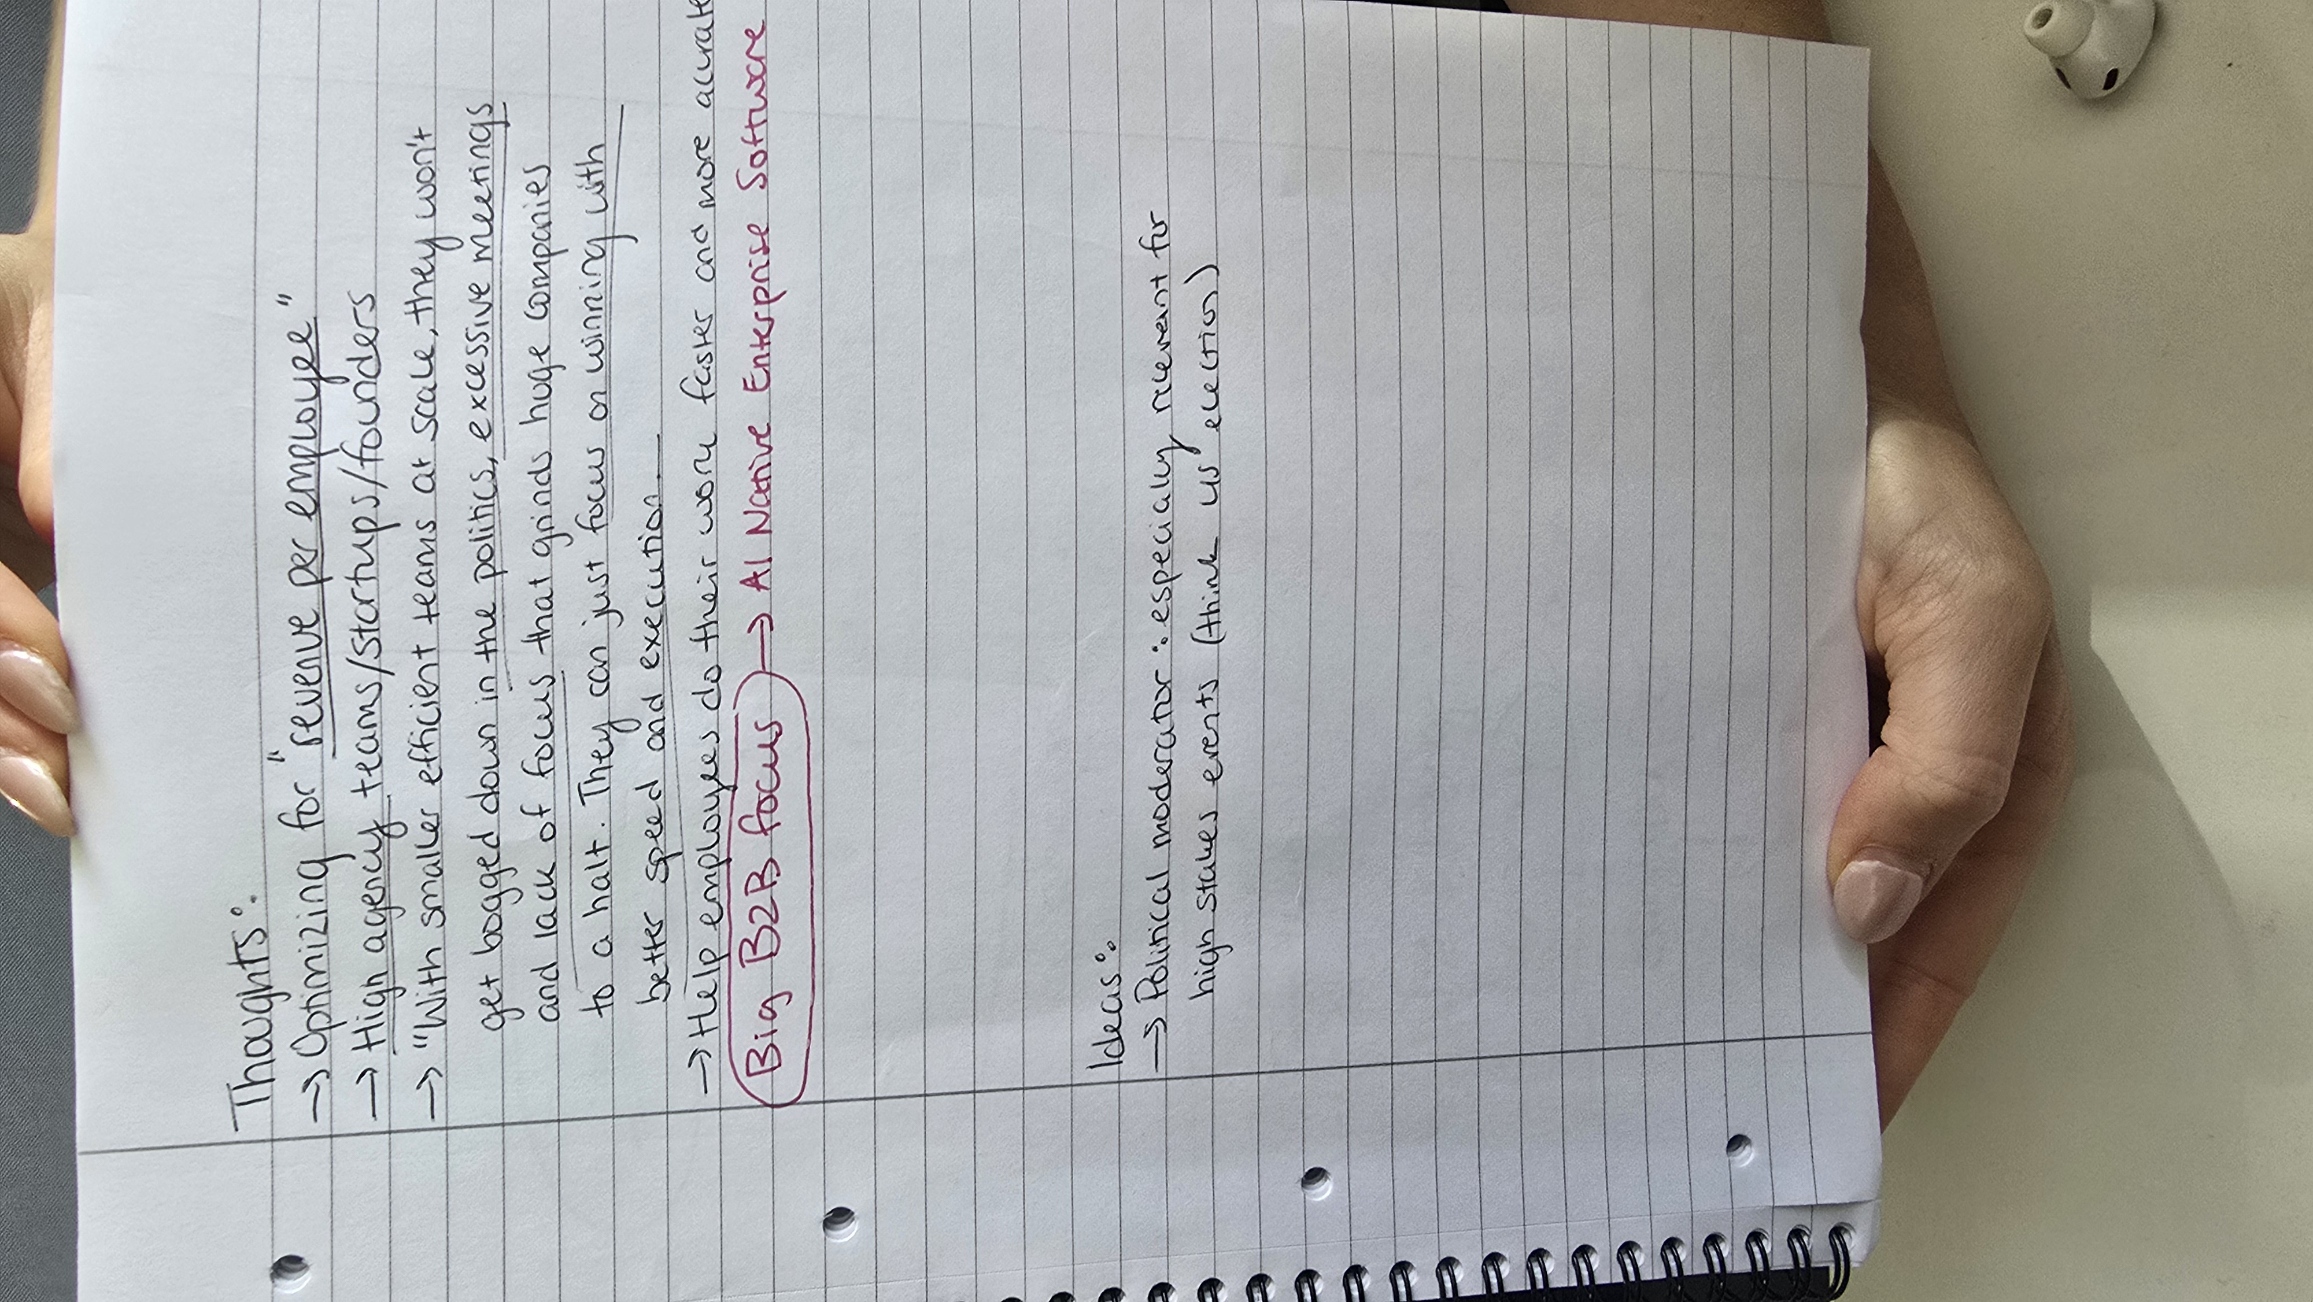 Thoughts:
→ Optimizing for "revenue per employee"
→ High agency teams/startups/founders
→ "With smaller efficient teams at scale, they won't
get bogged down in the politics, excessive meetings
and lack of focus that grinds huge companies
to a halt. They can just focus on winning with
better speed and execution.
→ Help employees do their work faster and more accurate
Big B2B focus → AI Native Enterprise Software
Ideas:
→ Political moderator : especially relevant for
high stakes events (think US election)